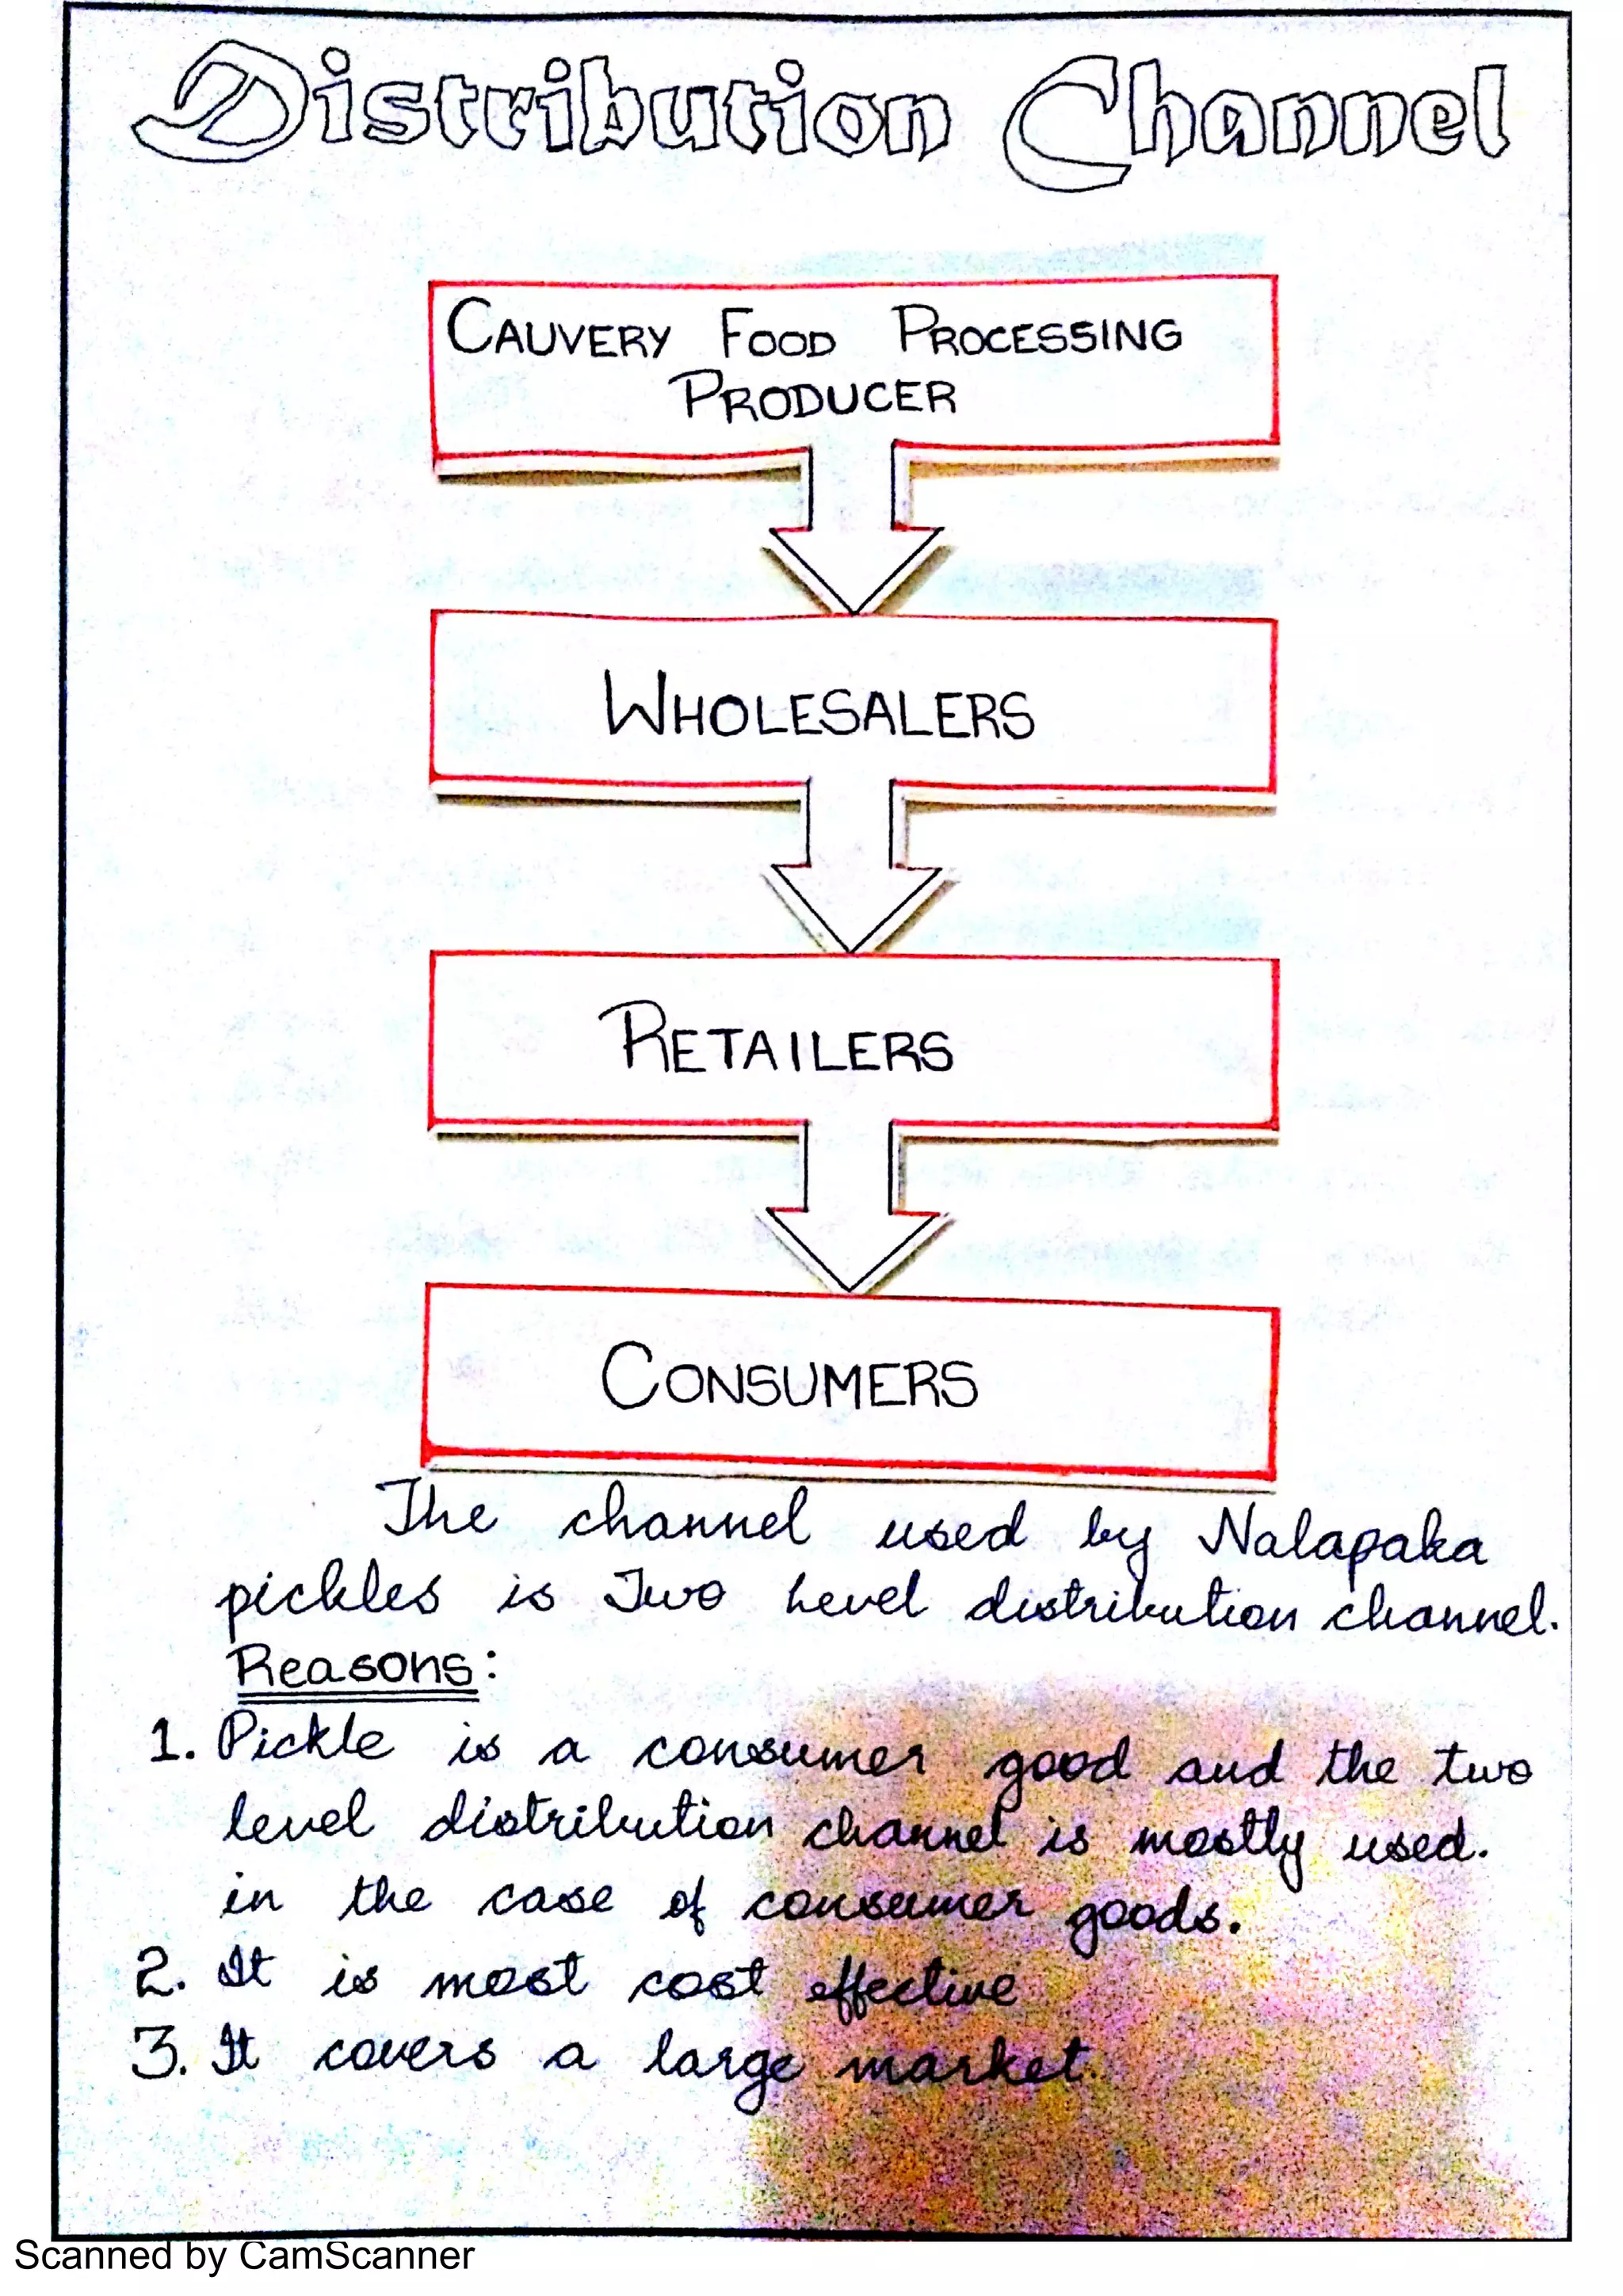 Distribution Channel
CAUVERY FOOD PROCESSING
PRODUCER
WHOLESALERS
RETAILERS
CONSUMERS
The channel used by Nalapaka
pickles is Two Level distribution channel.
Reasons:
1. Pickle is a consumer good and the two
level distribution channel is mostly used.
in the case of consumer goods.
2. It is most cost effective
3. It covers a large market.
Scanned by CamScanner